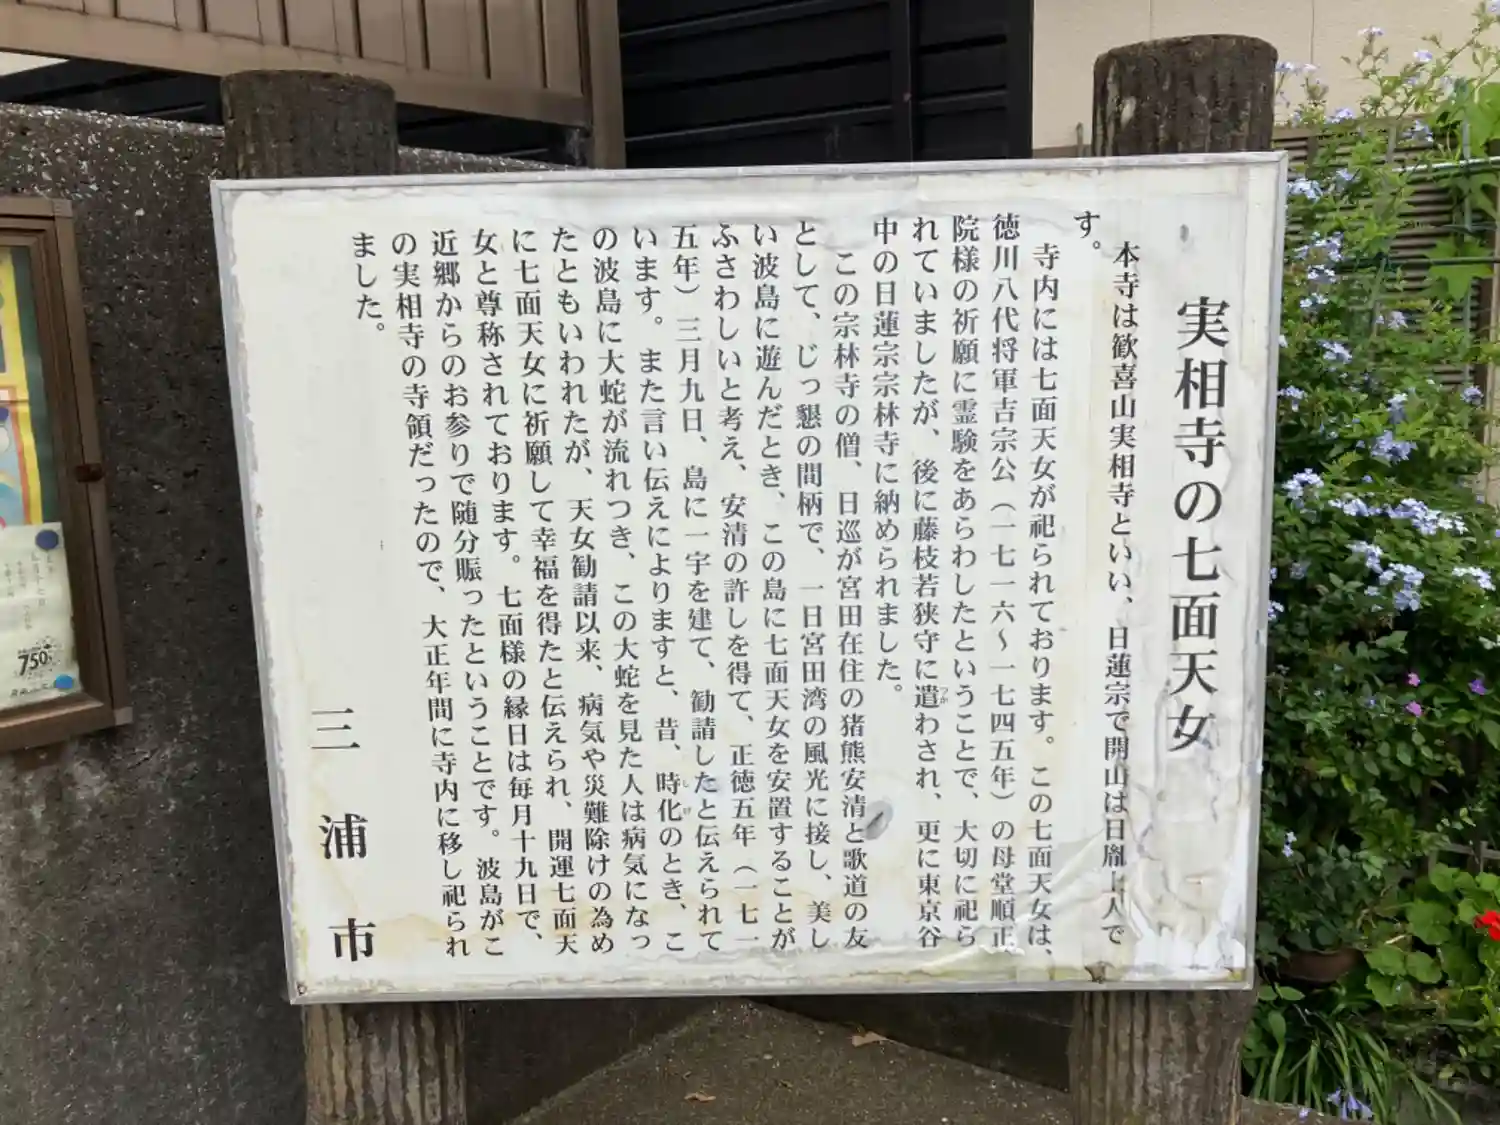 実相寺の七面天女
本寺は歓喜山実相寺といい、日蓮宗で開山は日胤上人で
す。
寺内には七面天女が祀られております。この七面天女は、
徳川八代将軍吉宗公（一七一六～一七四五年）の母堂順正
院様の祈願に霊験をあらわしたということで、大切に祀ら
れていましたが、後に藤枝若狭守に遣わされ、更に東京谷
中の日蓮宗宗林寺に納められました。
この宗林寺の僧、日巡が宮田在住の猪熊安清と歌道の友
として、じっ懇の間柄で、一日宮田湾の風光に接し、美し
い波島に遊んだとき、この島に七面天女を安置することが
ふさわしいと考え、安清の許しを得て、正徳五年（一七一
五年）三月九日、島に一宇を建て、勧請したと伝えられて
います。また言い伝えによりますと、昔、時化のとき、こ
の波島に大蛇が流れつき、この大蛇を見た人は病気になっ
たともいわれたが、天女勧請以来、病気や災難除けの為め
に七面天女に祈願して幸福を得たと伝えられ、開運七面天
女と尊称されております。七面様の縁日は毎月十九日で、
近郷からのお参りで随分賑ったということです。波島がこ
の実相寺の寺領だったので、大正年間に寺内に移し祀られ
ました。
三浦市
750